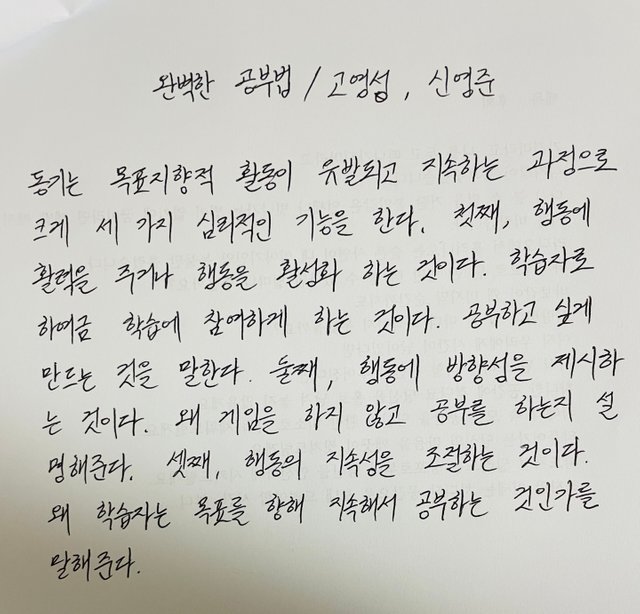 완벽한 공부법 / 고영성, 신영준
동기는 목표지향적 활동이 유발되고 지속하는 과정으로
크게 세 가지 심리적인 기능을 한다. 첫째, 행동에
활력을 주거나 행동을 활성화 하는 것이다. 학습자로
하여금 학습에 참여하게 하는 것이다. 공부하고 싶게
만드는 것을 말한다. 둘째, 행동에 방향성을 제시하
는 것이다. 왜 게임을 하지 않고 공부를 하는지 설
명해준다. 셋째, 행동의 지속성을 조절하는 것이다.
왜 학습자는 목표를 향해 지속해서 공부하는 것인가를
말해준다.